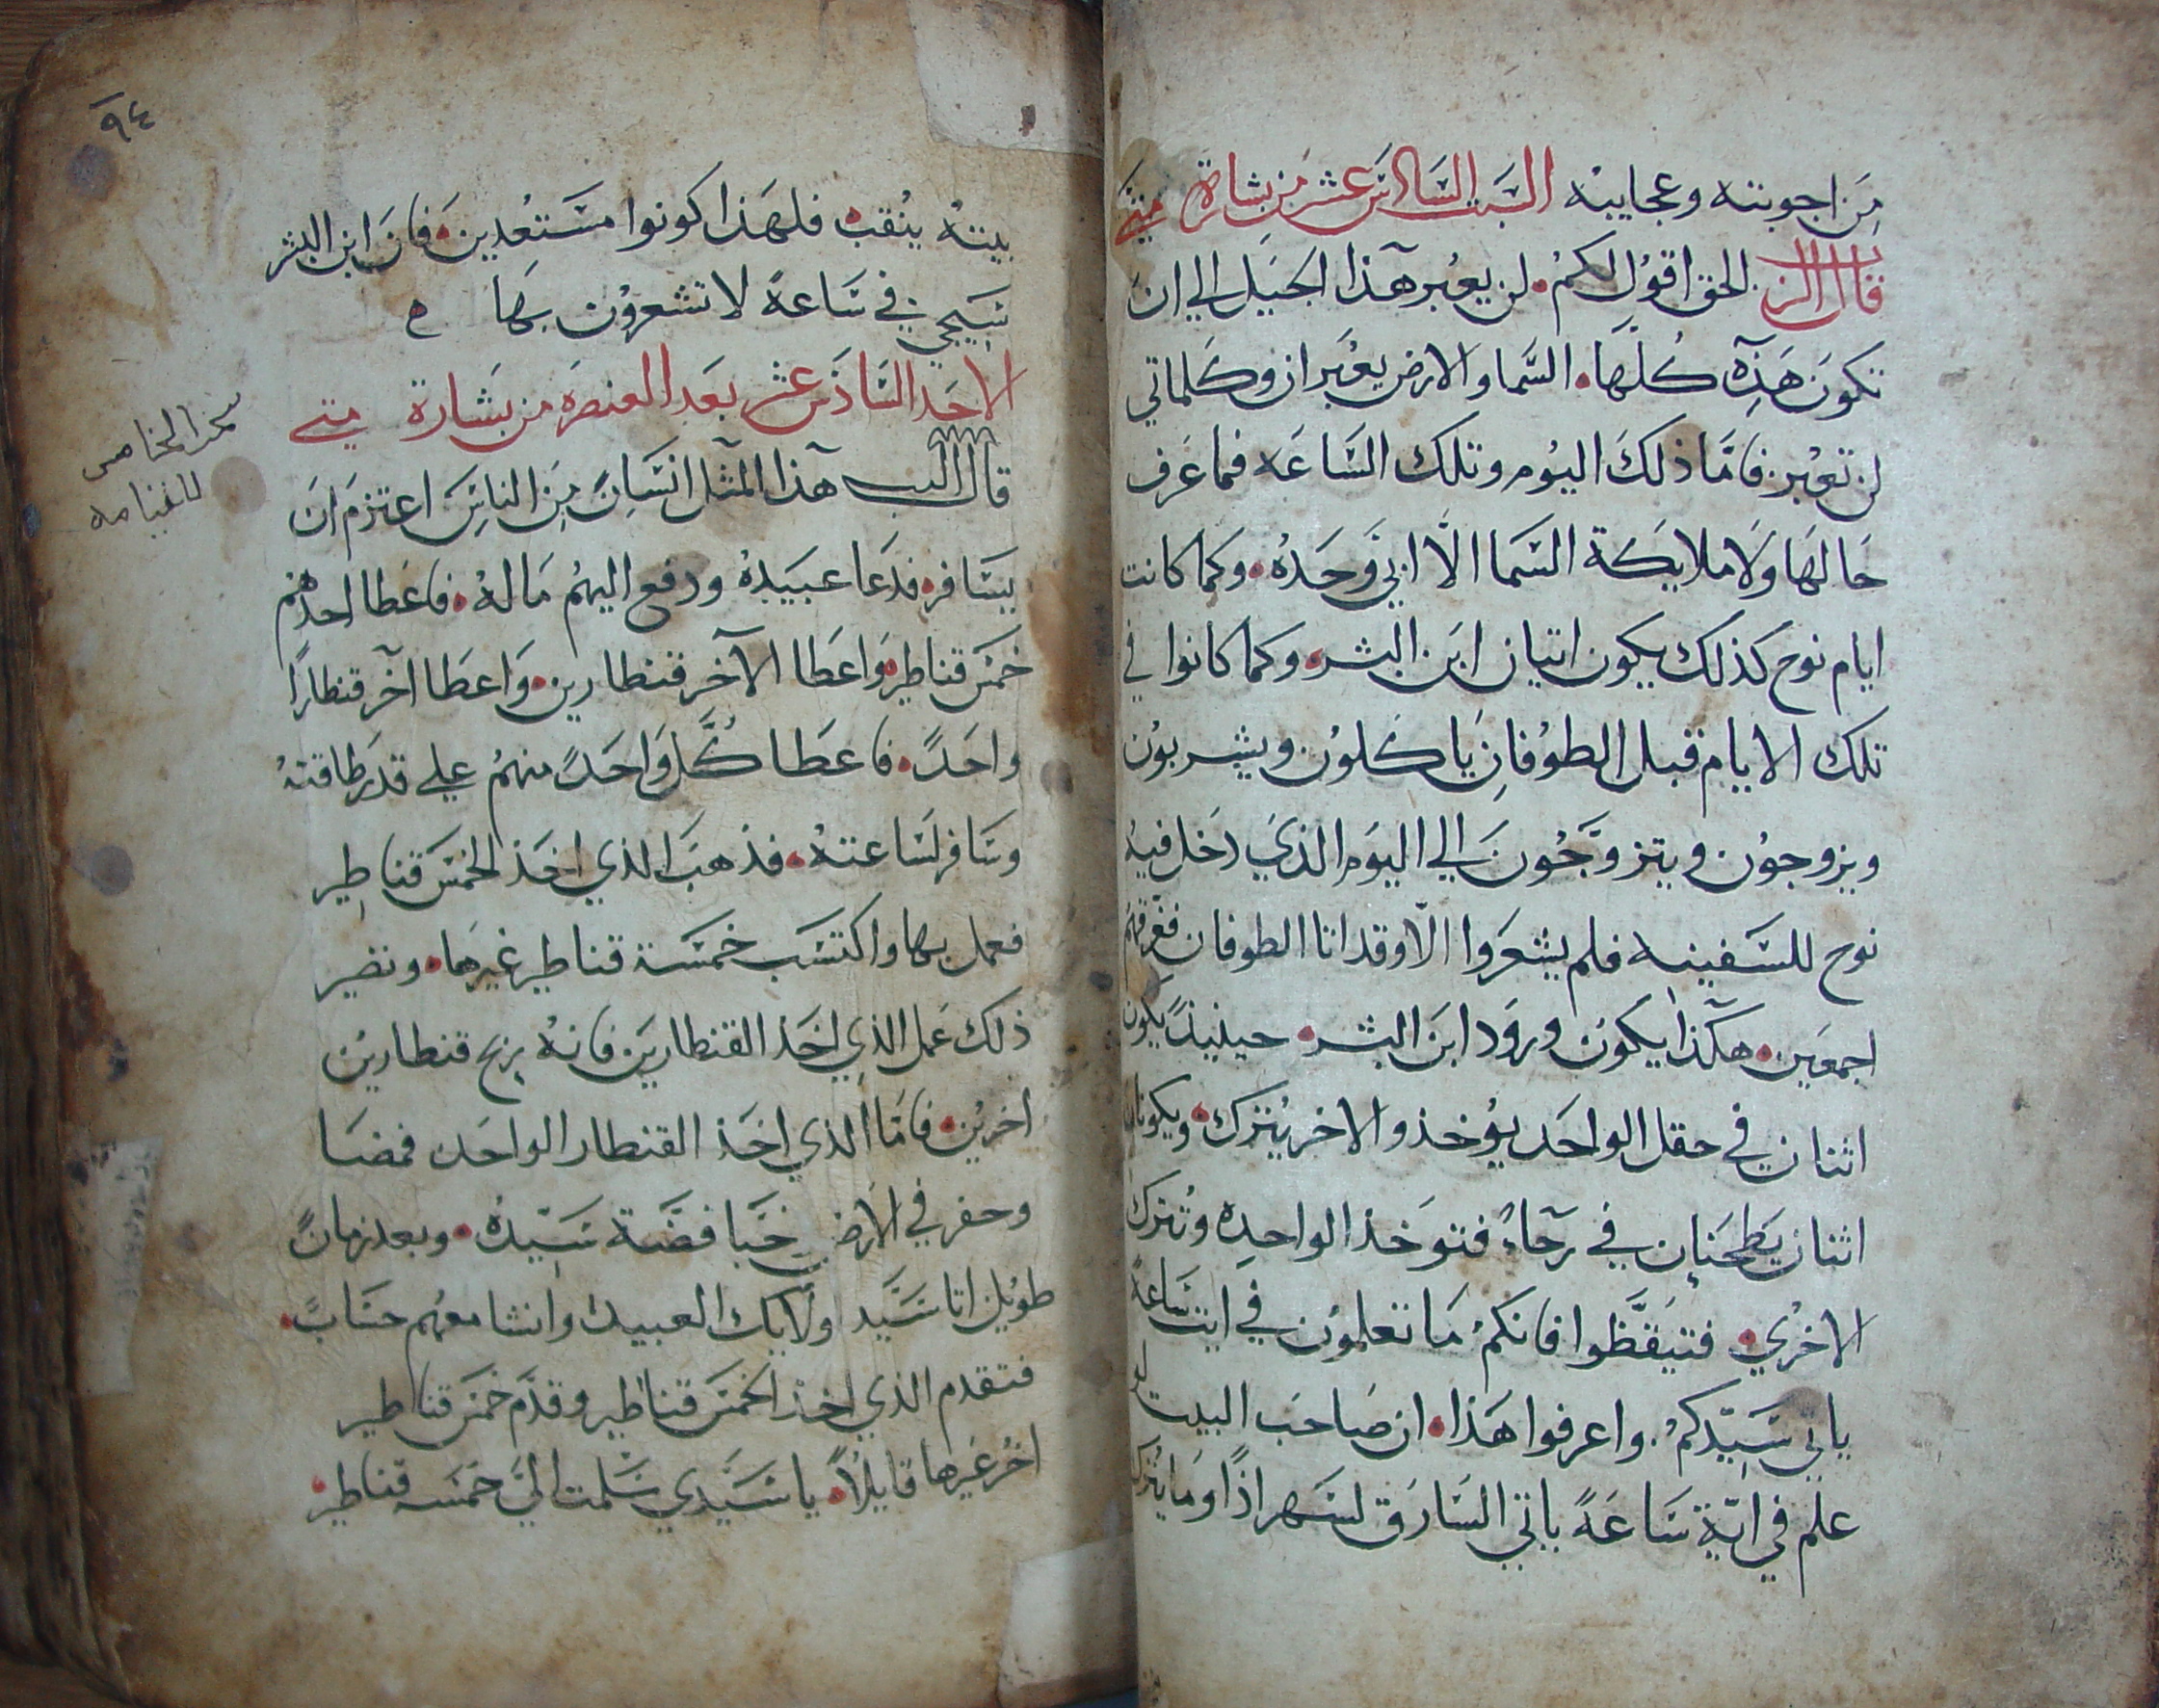 مِن اجوبته وعجايبه السَبت السَادَس عشر من بشارة متي
قال الرب الحق اقول لكم لن يعبر هذا الجيل الي ان
تكون هذه كلها السَّما والارض يعبران وكلماتي
لن تعبر فامّا ذلك اليوم وتلك السَّاعَه فما عَرف
حَالهَا وَلا ملايكة السَّما الّا ابي وَحَدهُ وكما كانت
ايام نوح كذلك يكون اتيان ابن البشر وكما كانوا في
تلك الايام قبل الطوفان ياكلون ويشربون
ويزوجون ويتزوَّجُون الي اليوم الذي دَخل فيه
نوح للسَّفينه فلم يشعروا الّا وقد اتا الطوفان فغرقهم
اجمعين هكذا يكون ورود ابن البشر حينيذٍ يكون
اثنان في حقل الواحد يوخذ والاخر يُترك ويكونا
اثنان يَطحنان في رَحَاء فتوخذ الواحده وتُترك
الاخري فتيقَّظوا فانكم مَا تعلمون في ايت سَاعة
ياتي سَيّدكم واعرفوا هَذا ان صَاحب البيت لو
علم في ايّة سَاعَةً ياتي السَّارق لسَهر اذًا وَما يترك
٩٤
بيتهُ ينُقب فلهَذا كونوا مسَتعُدين فان ابن البشر
سَيجي في سَاعةً لا تشعرون بها
الاحَد السَّادَس عشر بعَد العنصَره من بشَارة متي
قال الرب هذا المثل انسَان مِن الناس اعتزم ان
يسَافر فدعَا عبيدهُ ودفع اليهم مَالهُ فاعَطا احدهم
خمسَ قناطر وَاعطَا الآخر قنطارين وَاعطَا آخر قنطارًا
واحَدً فاعطَا كُلّ وَاحَدً منهم علي قدَر طاقتهُ
وسَافر لسَاعتهُ فذهبَ الذي اخَذ الخمسَ قناطِير
فعمل بها واكتسَب خمسَة قناطير غيرها ونضير
ذلك عَمل الذي اخَذ القنطارين فانهُ ربح قنطارين
اخرين فامَّا الذي اخَذ القنطار الواحَد فمضَا
وحفر في الارض خبَّا فضَّة سَيّدهُ وبعد زمانً
طويل اتا سَيّد اولايك العبيد وانشا معهم حسَابً
فتقدم الذي اخذ الخمسَ قناطير وقدَّم خمسَ قناطير
اخر غيرها قايلاً يا سَيّدي سَلمت اليَّ خمسَه قناطير
سحر الخامس
للقيامه